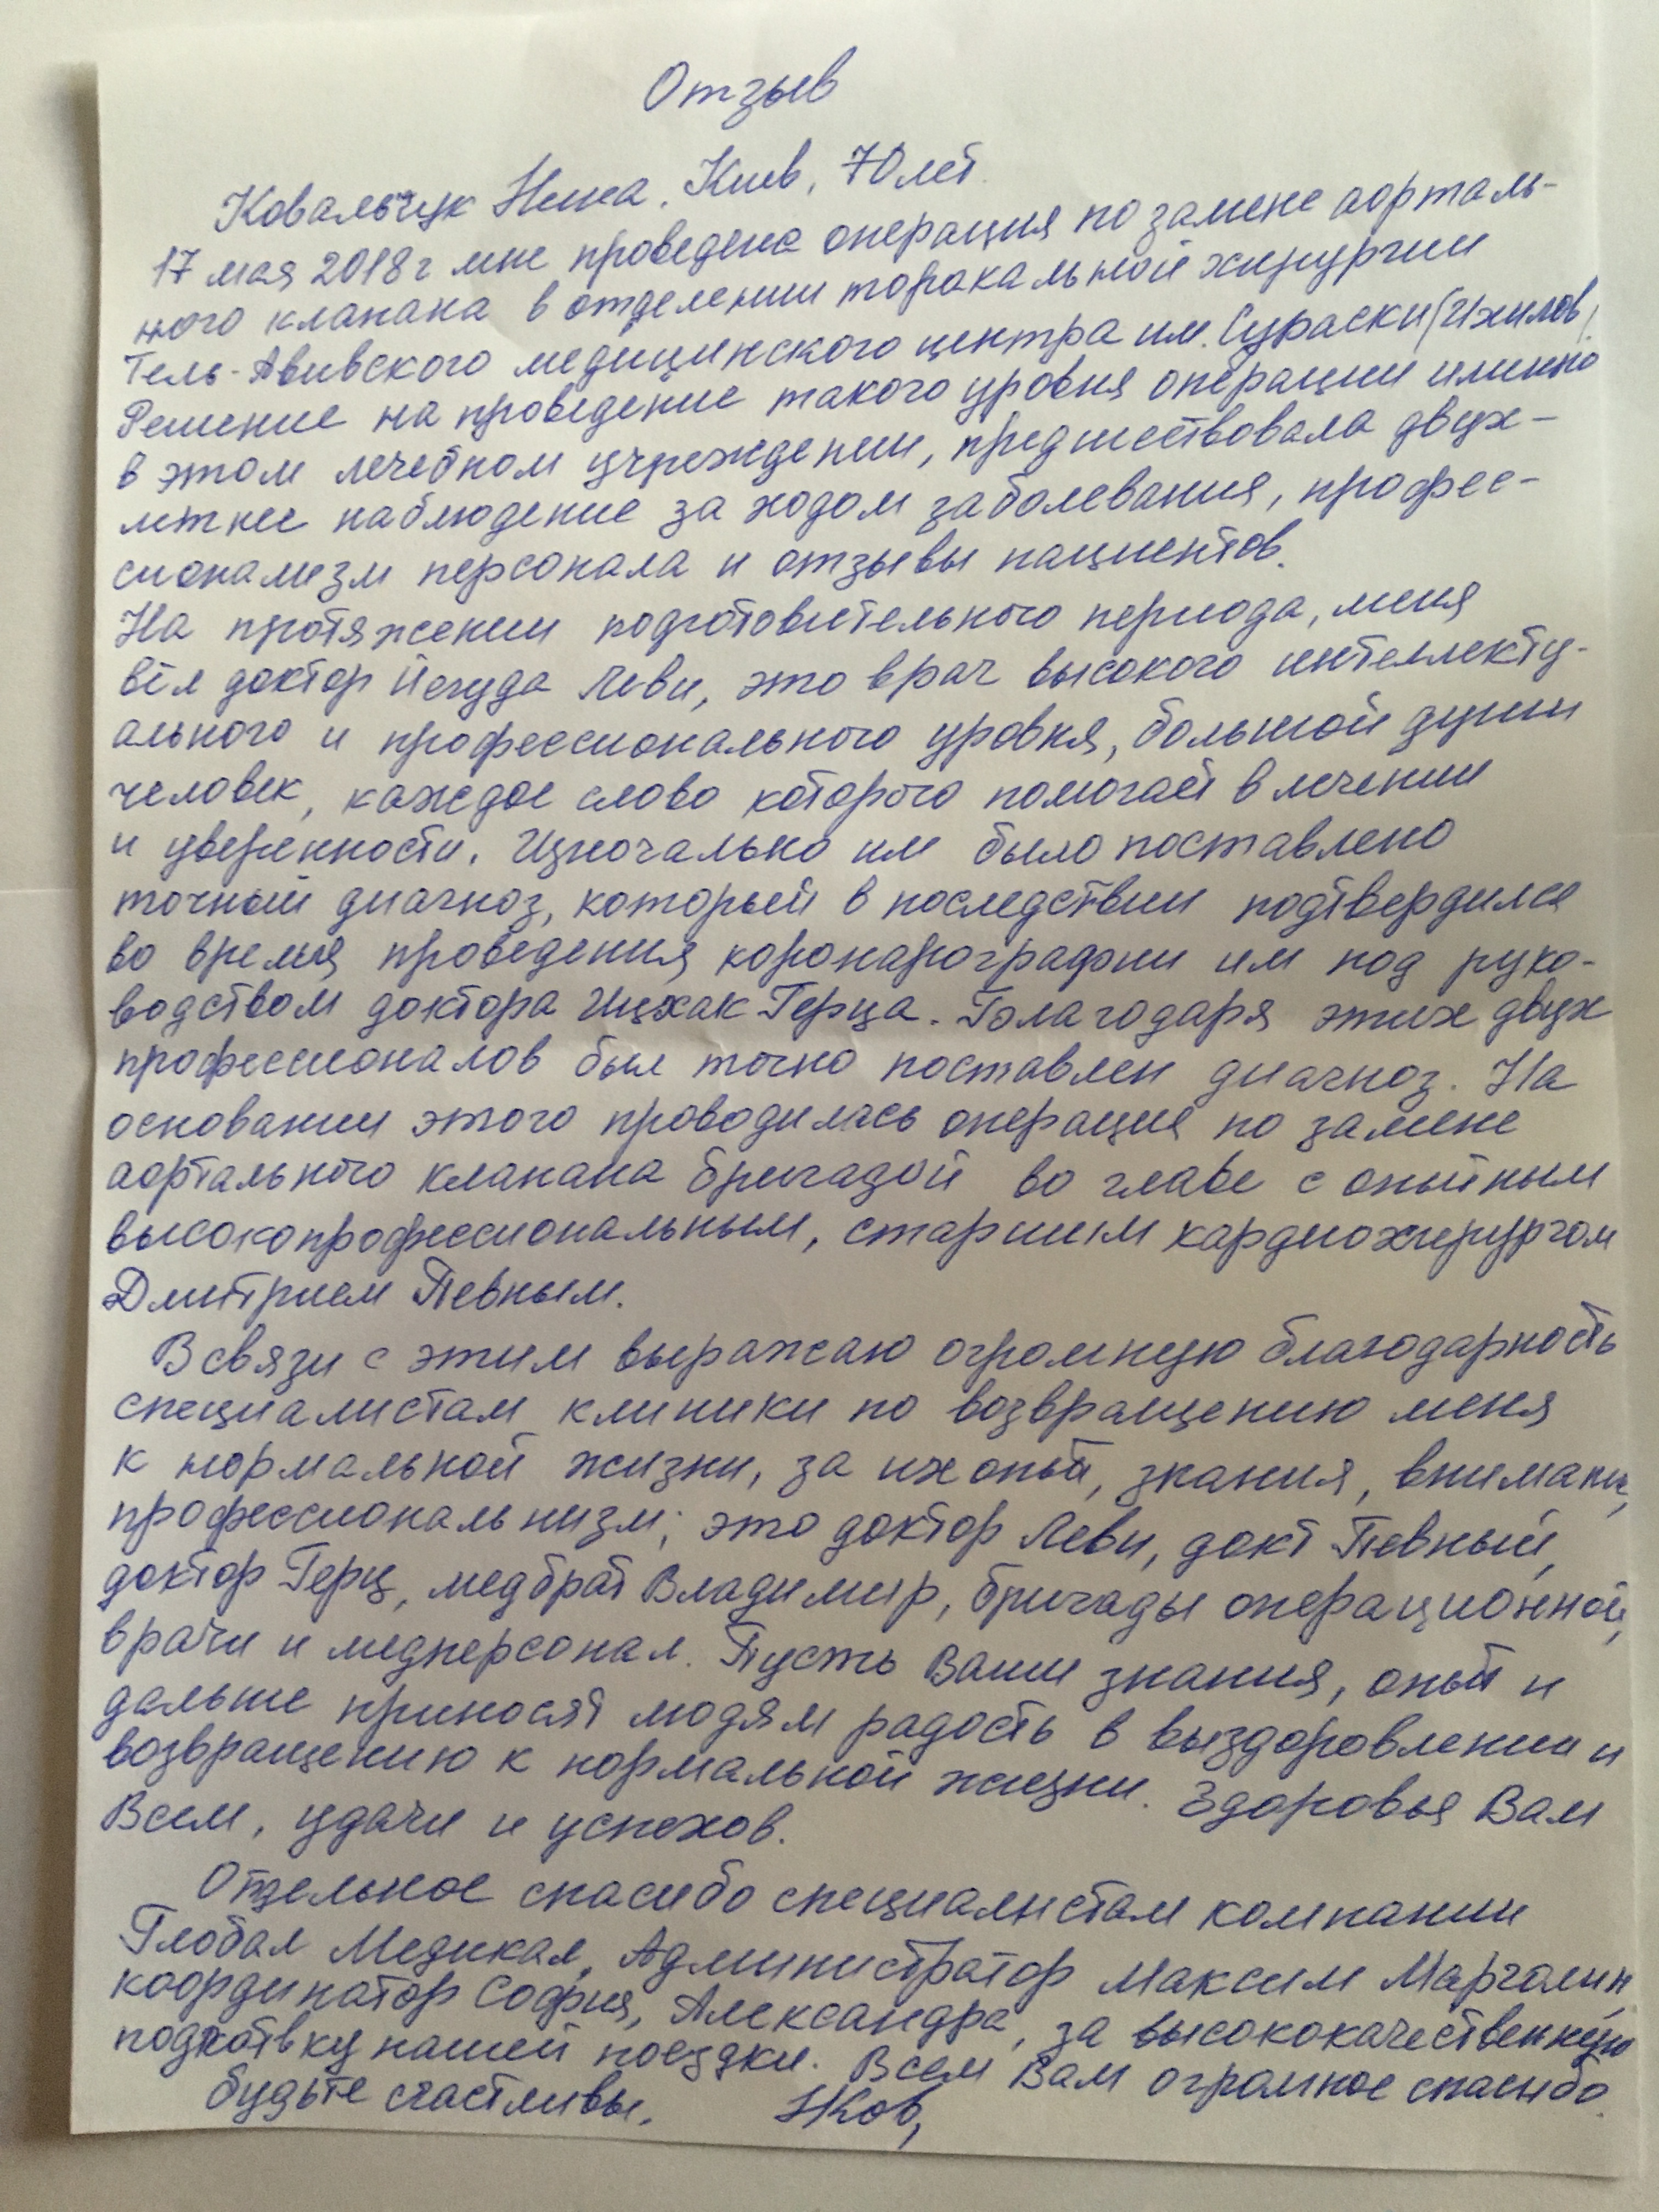 Отзыв
Ковальчук Нина. Киев, 70 лет.
17 мая 2018 г мне проведена операция по замене аорталь-
ного клапана в отделении торакальной хирургии
Тель-Авивского медицинского центра им. Сураски (Ихилов).
Решение на проведение такого уровня операции именно
в этом лечебном учреждении, предшествовала двух-
летнее наблюдение за ходом заболевания, профес-
сионализм персонала и отзывы пациентов.
На протяжении подготовительного периода, меня
вёл доктор Йегуда Леви, это врач высокого интеллекту-
ального и профессионального уровня, большой души
человек, каждое слово которого помогает в лечении
и уверенности. Изночально им было поставлено
точный диагноз, который в последствии подтвердился
во время проведения коронарографии им под руко-
водством доктора Ицхак Герца. Благодаря этих двух
профессионалов был точно поставлен диагноз. На
основании этого проводилась операция по замене
аортального клапана бригадой во главе с опытным
высокопрофессиональным, старшим кардиохирургом
Дмитрием Певным.
В связи с этим выражаю огромную благодарность
специалистам клиники по возвращению меня
к нормальной жизни, за их опыт, знания, внимание,
профессиональнизм; это доктор Леви, докт Певный,
доктор Герц, медбрат Владимир, бригады операционной,
врачи и медперсонал. Пусть Ваши знания, опыт и
дальше приносят людям радость в выздоровлении и
возвращению к нормальной жизни. Здоровья Вам
Всем, удачи и успехов.
Отдельное спасибо специалистам компании
Глобал Медикал, Администратор Максим Марголин,
координатор София, Александра, за высококачественную
подготвку нашей поездки. Всем Вам огромное спасибо.
будьте счастливы. НКов,